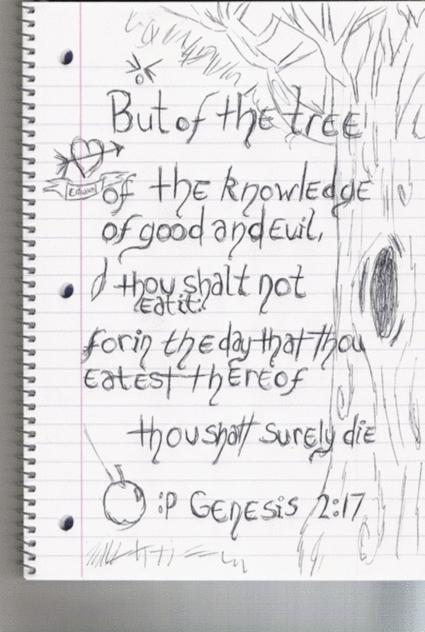 But of the tree
Edward
of the knowledge
of good and Evil,
thou shalt not
Eat it:
for in the day that thou
Eatest thereof
thou shalt surely die
:P Genesis 2:17